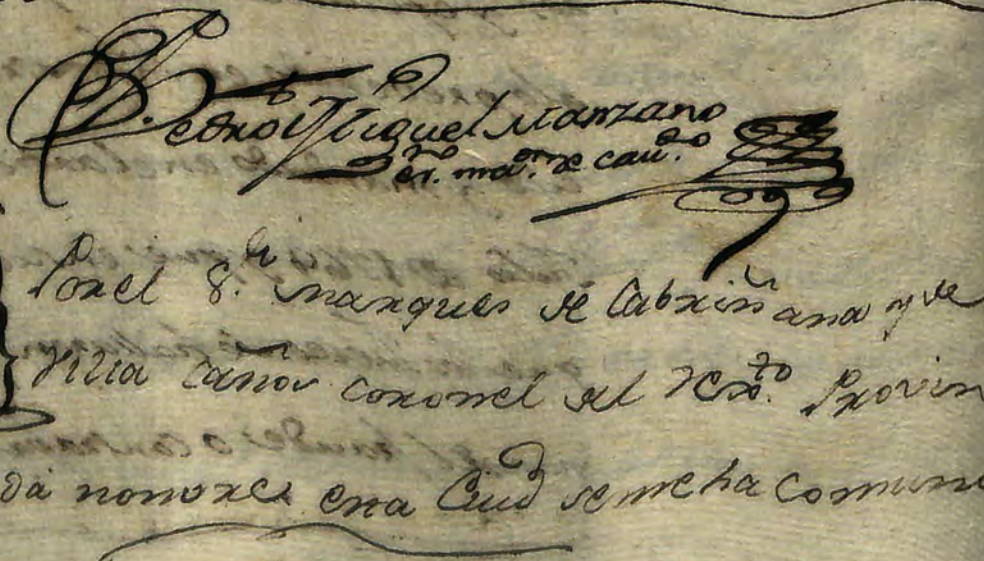 Pedro Miguel Manzano
Por el S.or Marques de Cabriñana y de
Villa caños coronel del Rex.to Provin
da honores esta Ciud se me ha Comuni